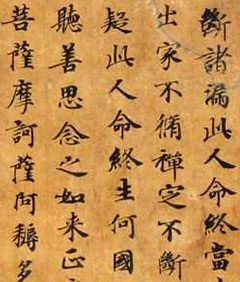 斷諸漏此人命終當
出家不脩禪定不斷
疑此人命終生何國
聽善思念之如来正
菩薩摩訶薩阿耨多